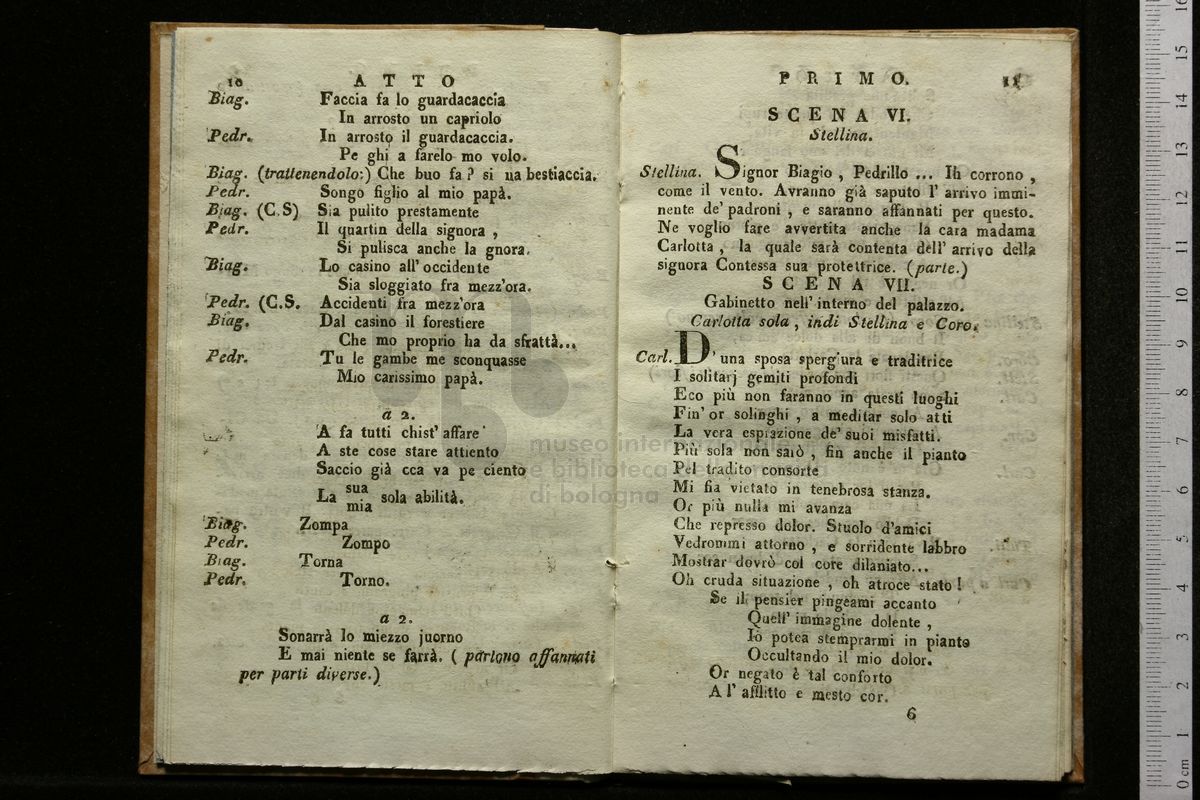 10 ATTO
Biag. Faccia fa lo guardacaccia
In arrosto un capriolo
Pedr. In arrosto il guardacaccia.
Pe ghi a farelo mo volo.
Biag. (trattenendolo:) Che buo fa? si na bestiaccia.
Pedr. Songo figlio al mio papà.
Biag. (C.S) Sia pulito prestamente
Pedr. Il quartin della signora,
Si pulisca anche la gnora.
Biag. Lo casino all' occidente
Sia sloggiato fra mezz'ora.
Pedr. (C.S. Accidenti fra mezz'ora
Biag. Dal casino il forestiere
Che mo proprio ha da sfrattà...
Pedr. Tu le gambe me sconquasse
Mio carissimo papà.
a 2.
A fa tutti chist' affare
A ste cose stare attiento
Saccio già cca va pe ciento
La sua sola abilità.
mia
Biag. Zompa
Pedr. Zompo
Biag. Torna
Pedr. Torno.
a 2.
Sonarrà lo miezzo juorno
E mai niente se farrà. ( partono affannati
per parti diverse.)
PRIMO. 11
SCENA VI.
Stellina.
Stellina. Signor Biagio, Pedrillo ... Ih corrono,
come il vento. Avranno già saputo l' arrivo immi-
nente de' padroni, e saranno affannati per questo.
Ne voglio fare avvertita anche la cara madama
Carlotta, la quale sarà contenta dell' arrivo della
signora Contessa sua protettrice. (parte.)
SCENA VII.
Gabinetto nell' interno del palazzo.
Carlotta sola, indi Stellina e Coro.
Carl. D' una sposa spergiura e traditrice
I solitarj gemiti profondi
Eco più non faranno in questi luoghi
Fin' or solinghi, a meditar solo atti
La vera espiazione de' suoi misfatti.
Più sola non sarò, fin anche il pianto
Pel tradito consorte
Mi fia vietato in tenebrosa stanza.
Or più nulla mi avanza
Che represso dolor. Stuolo d'amici
Vedrommi attorno, e sorridente labbro
Mostrar dovrò col core dilaniato...
Oh cruda situazione, oh atroce stato!
Se il pensier pingeami accanto
Quell' immagine dolente,
Io potea stemprarmi in pianto
Occultando il mio dolor.
Or negato è tal conforto
A l' afflitto e mesto cor.
6
museo internazionale
e biblioteca della
di bologna
0 cm 1 2 3 4 5 6 7 8 9 10 11 12 13 14 15 16